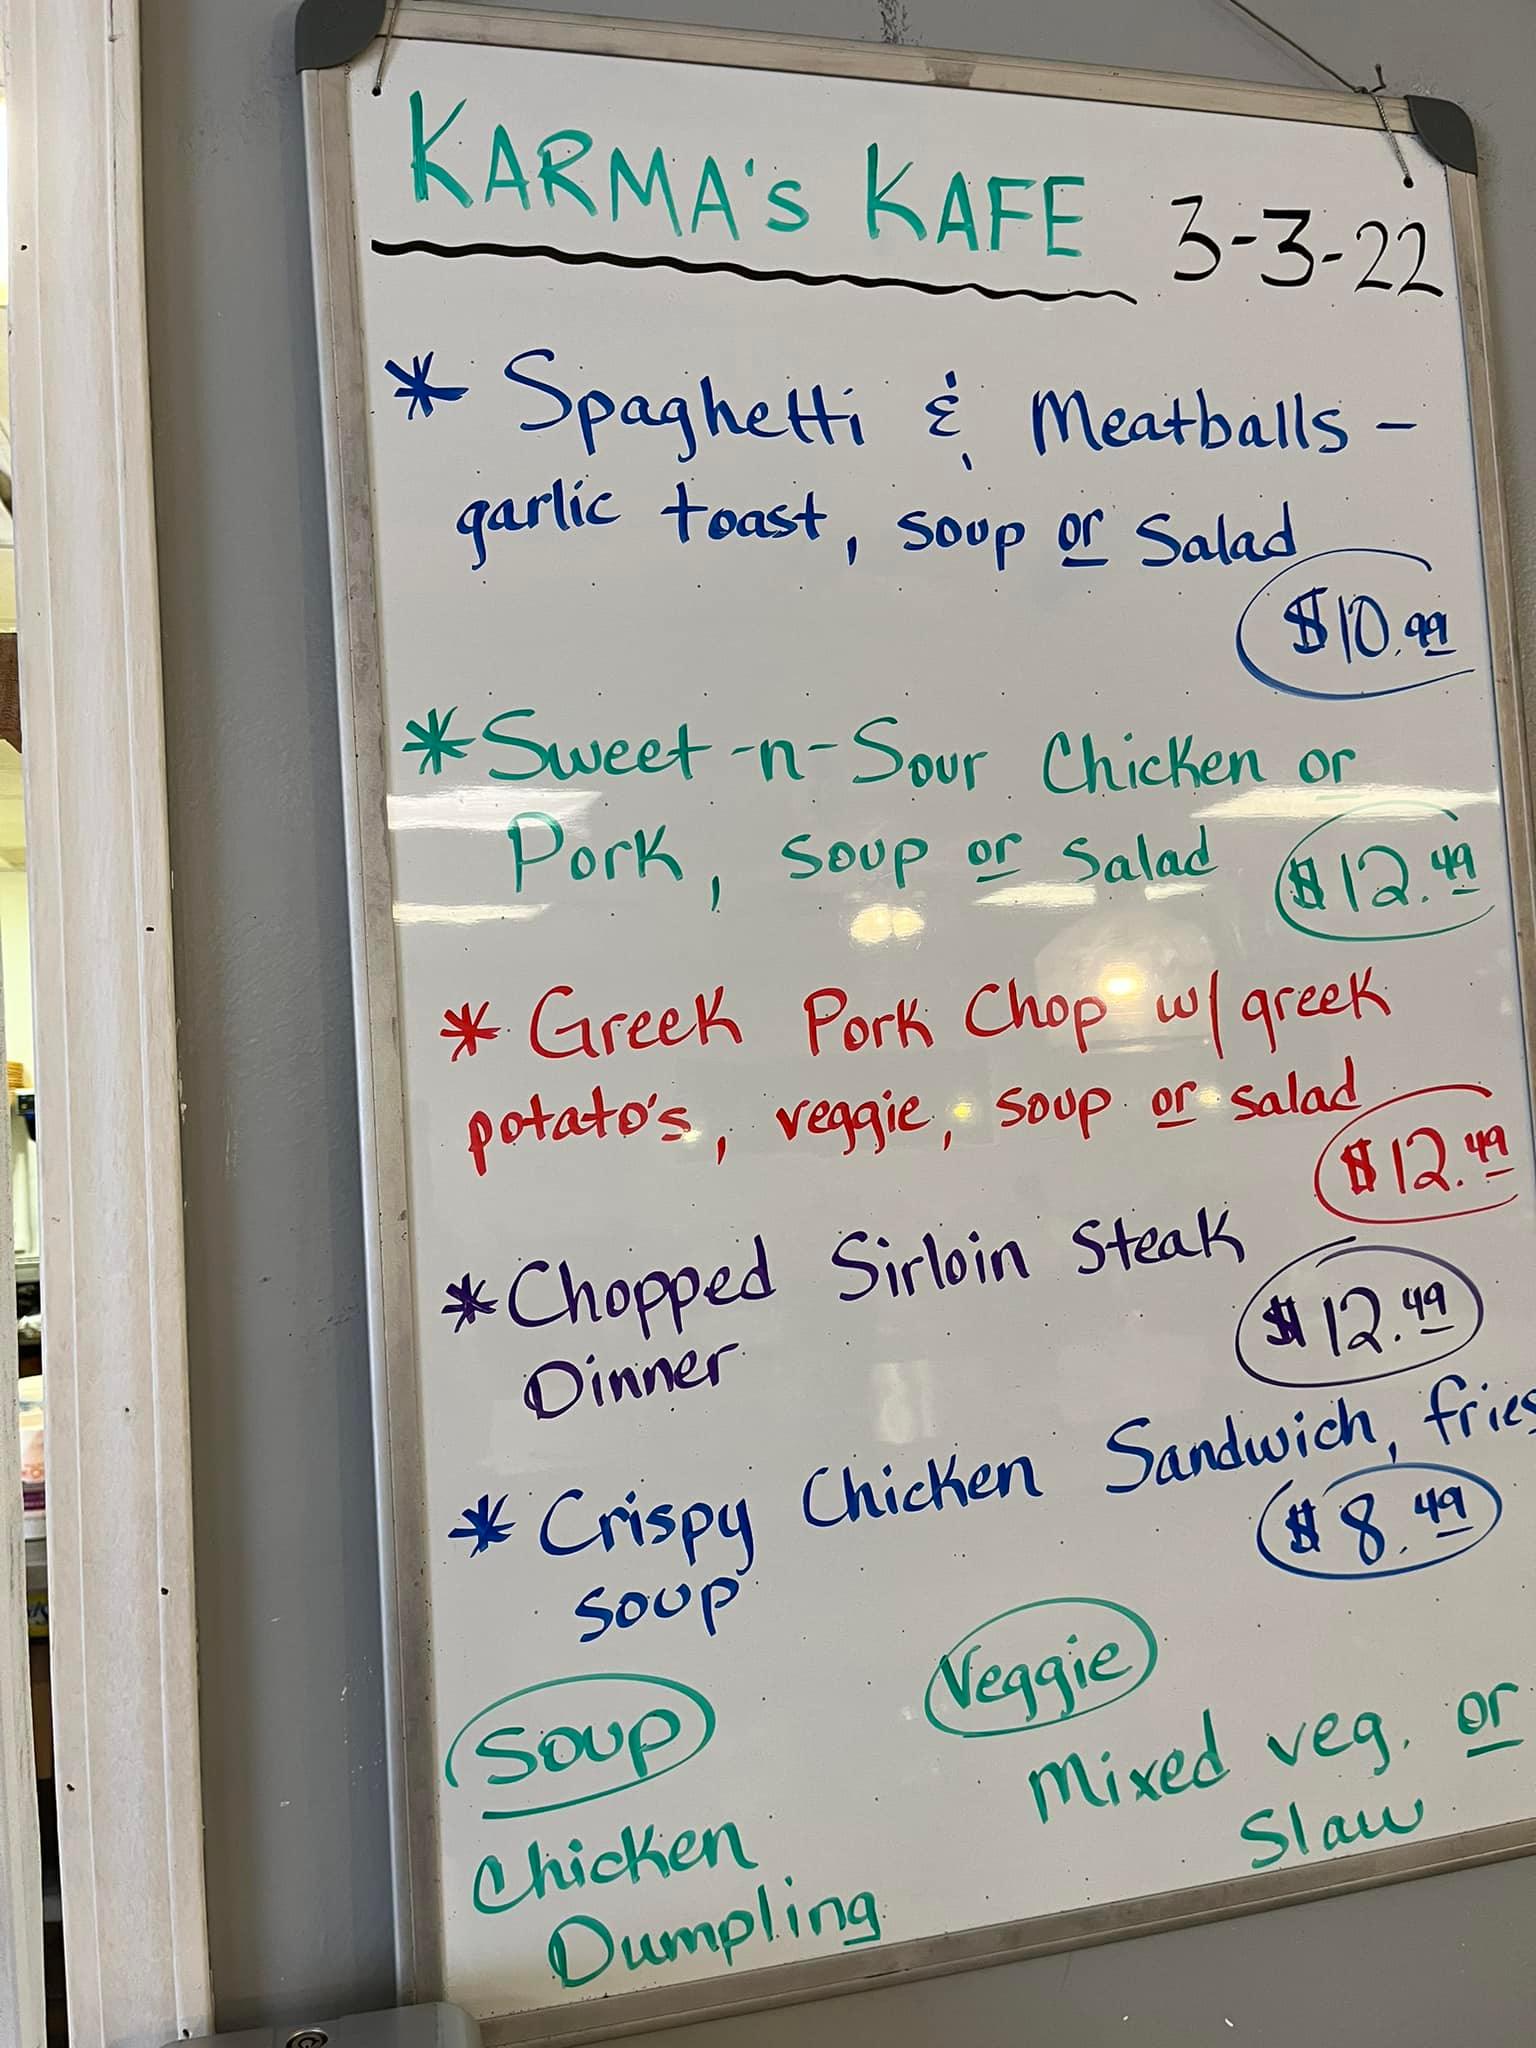 KARMA's KAFE 3-3-22
* Spaghetti & Meatballs -
garlic toast, soup or Salad
$10.99
* Sweet-n-Sour Chicken or
Pork, soup or Salad $12.49
* Greek Pork Chop w/greek
potato's, veggie, soup or salad
$12.49
* Chopped Sirloin Steak
Dinner $12.49
* Crispy Chicken Sandwich, fries
soup $8.49
Soup
Chicken
Dumpling
Veggie
Mixed veg. or
Slaw